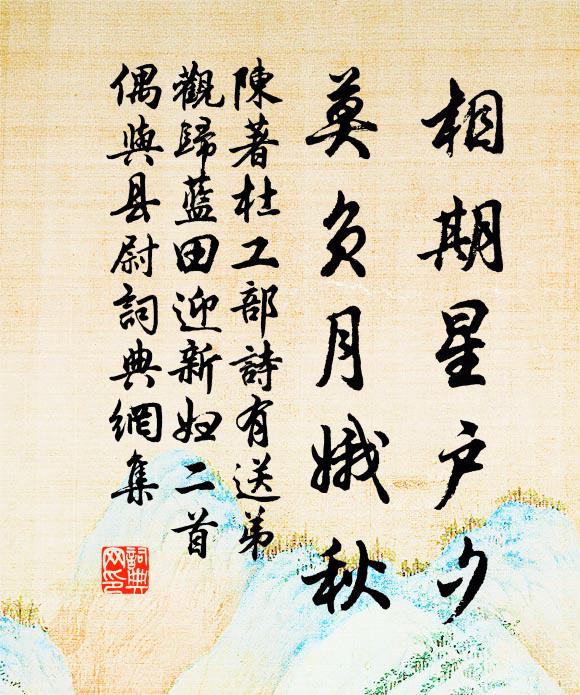 相期星户夕
莫负月娥秋
陳著杜工部詩有送弟
觀歸藍田迎新妇二首
偶與县尉詞典網集
詞典网印